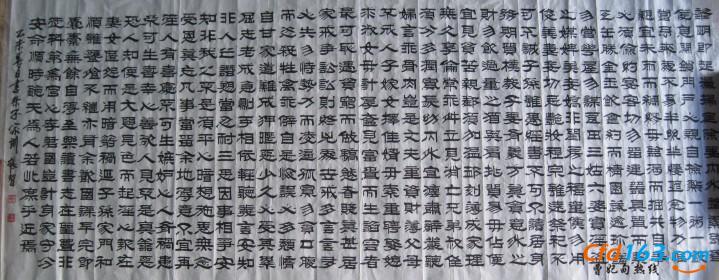 黎明即起灑掃庭除要內外整潔既昏
便息關鎖門戶必親自檢點一粥一飯
當思來處不易半絲半縷恒念物力維
艱宜未雨而綢繆毋臨渴而掘井自奉
必須儉約宴客切勿留連器具質而潔瓦缶勝金
玉飲食約而精園蔬愈珍饈
勿營華屋勿謀良田三姑六婆實淫盜
之媒婢美妾嬌非閨房之福童僕勿用
俊美妻妾切忌艷妝祖宗雖遠祭祀不
可不誠子孫雖愚經書不可不讀居身
務期質樸教子要有義方莫貪意外之
財勿飲過量之酒與肩挑貿易毋佔便
宜見貧苦親鄰須加溫恤刻薄成家理
無久享倫常乖舛立見消亡兄弟叔侄
須分多潤寡長幼內外宜法肅辭嚴聽
婦言乖骨肉豈是丈夫重資財薄父母
不成人子嫁女擇佳婿毋索重聘娶媳
求淑女毋計厚奩見富貴而生諂容者
最可恥遇貧窮而作驕態者賤莫甚居
家戒爭訟訟則終凶處世戒多言言多
必失勿恃勢力而凌逼孤寡勿貪口腹
而恣殺牲禽乖僻自是悔誤必多頹惰
自甘家道難成狎昵惡少久必受其累
屈志老成急則可相依輕聽發言安知
非人之譖訴當忍耐三思因事相爭安
知非我之不是須平心暗想施惠無念
受恩莫忘凡事當留餘地得意不宜再
往人有喜慶不可生妒忌心人有禍患
不可生喜幸心善欲人見不是真善惡
恐人知便是大惡見色而起淫心報在
妻女匿怨而用暗箭禍延子孫家門和
順雖饔飧不繼亦有餘歡國課早完即
囊橐無餘自得至樂讀書志在聖賢非
徒科第為官心存君國豈計身家守分
安命順時聽天為人若此庶乎近焉
cfd163.com
曹妃甸热线